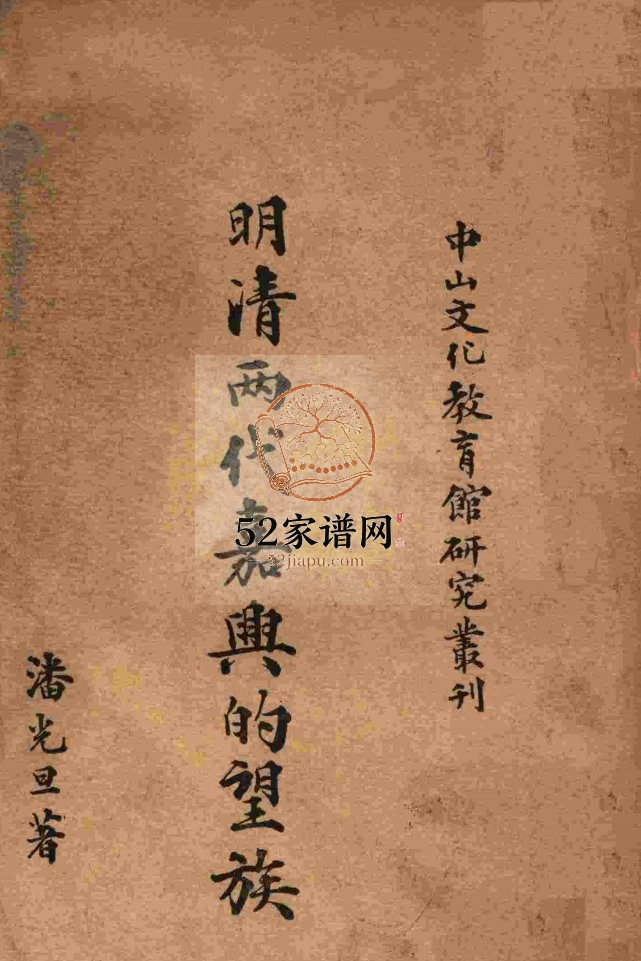 中山文化教育館研究叢刊
明清两代嘉興的望族
潘光旦著
52家谱网
52jiapu.com